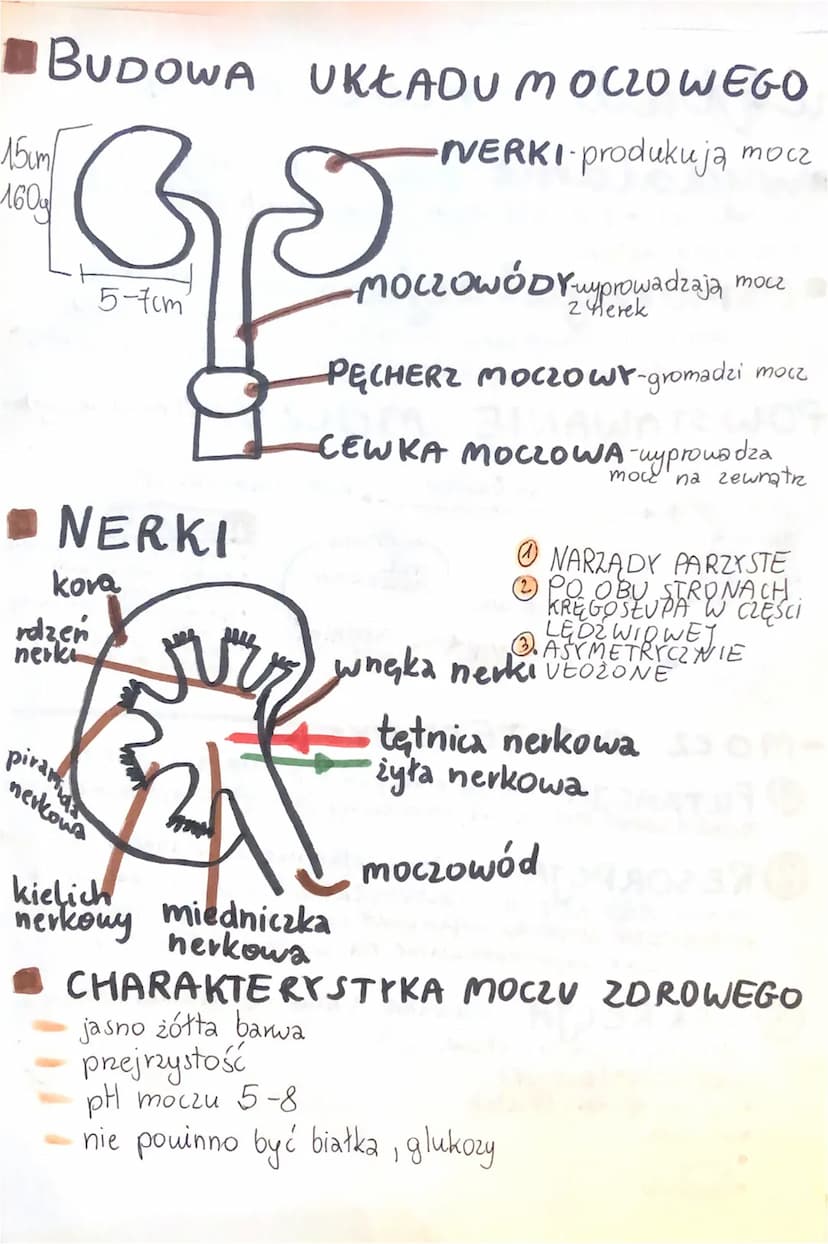 BUDOWA UKŁADU MOCZOWEGO
15cm
160g
5-7cm
NERKI-produkują mocz
MOCZOWÓDY-wyprowadzają mocz
z nerek
PĘCHERZ MOCZOWY-gromadzi mocz
CEWKA MOCZOWA-wyprowadza
mocz na zewnątrz
NERKI
1 NARZĄDY PARZYSTE
2 PO OBU STRONACH
KRĘGOSŁUPA W CZĘŚCI
LĘDŹWIOWEJ
3. ASYMETRYCZNIE
UŁOŻONE
kora
rdzeń
nerki
wnęka nerki
tętnica nerkowa
żyła nerkowa
piramida
nerkowa
moczowód
kielich
nerkowy
miedniczka
nerkowa
CHARAKTERYSTYKA MOCZU ZDROWEGO
- jasno żółta barwa
- przejrzystość
- pH moczu 5-8
- nie powinno być białka, glukozy